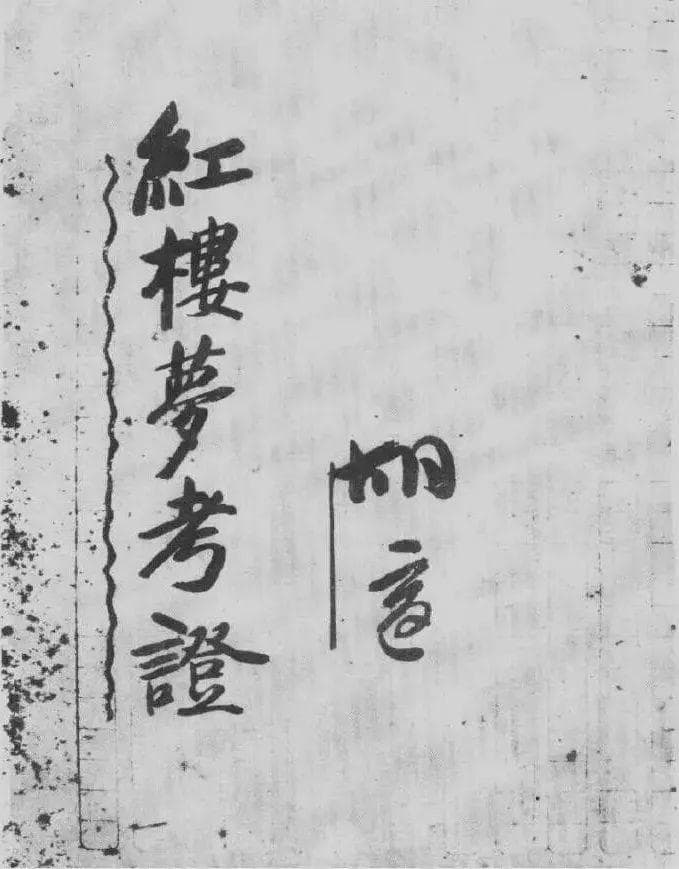 紅樓夢考證
胡適